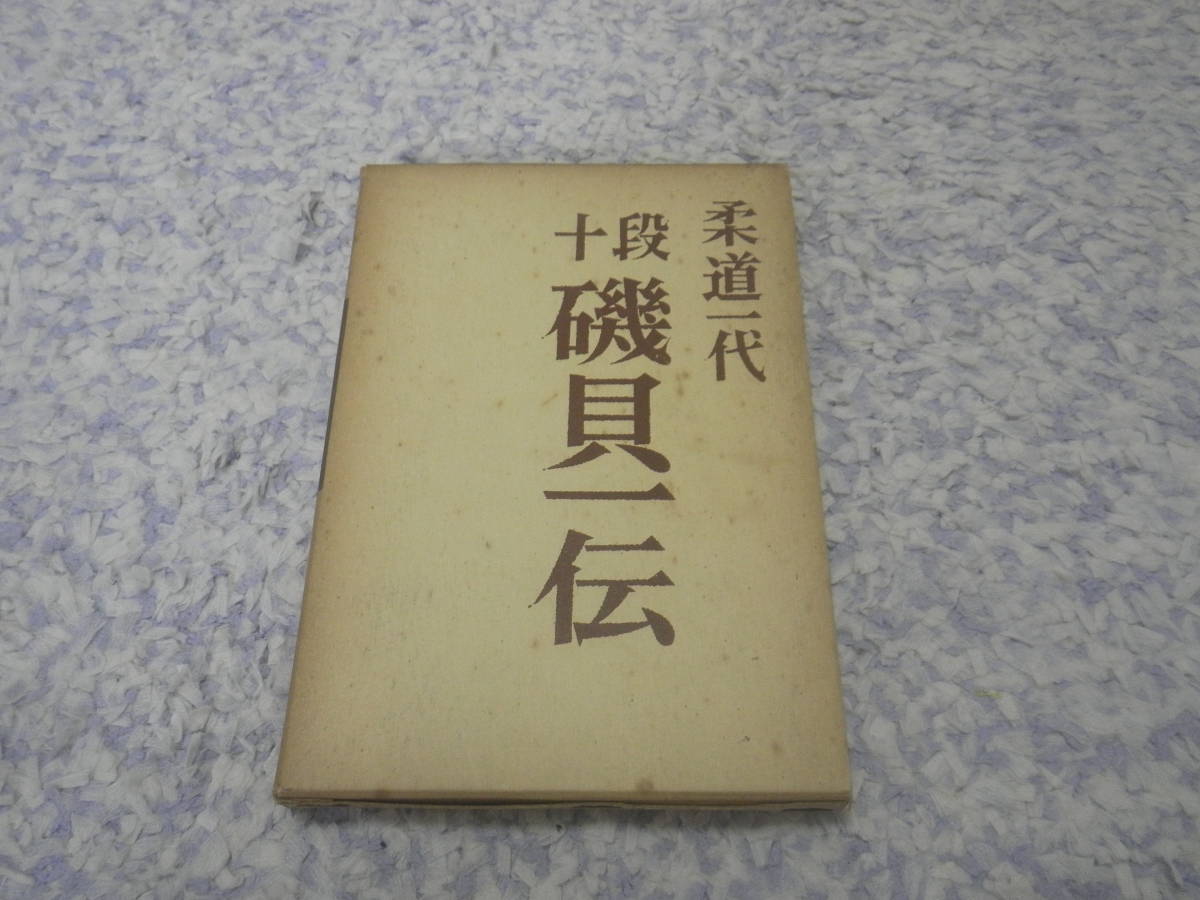 柔道一代
十段
磯貝一伝